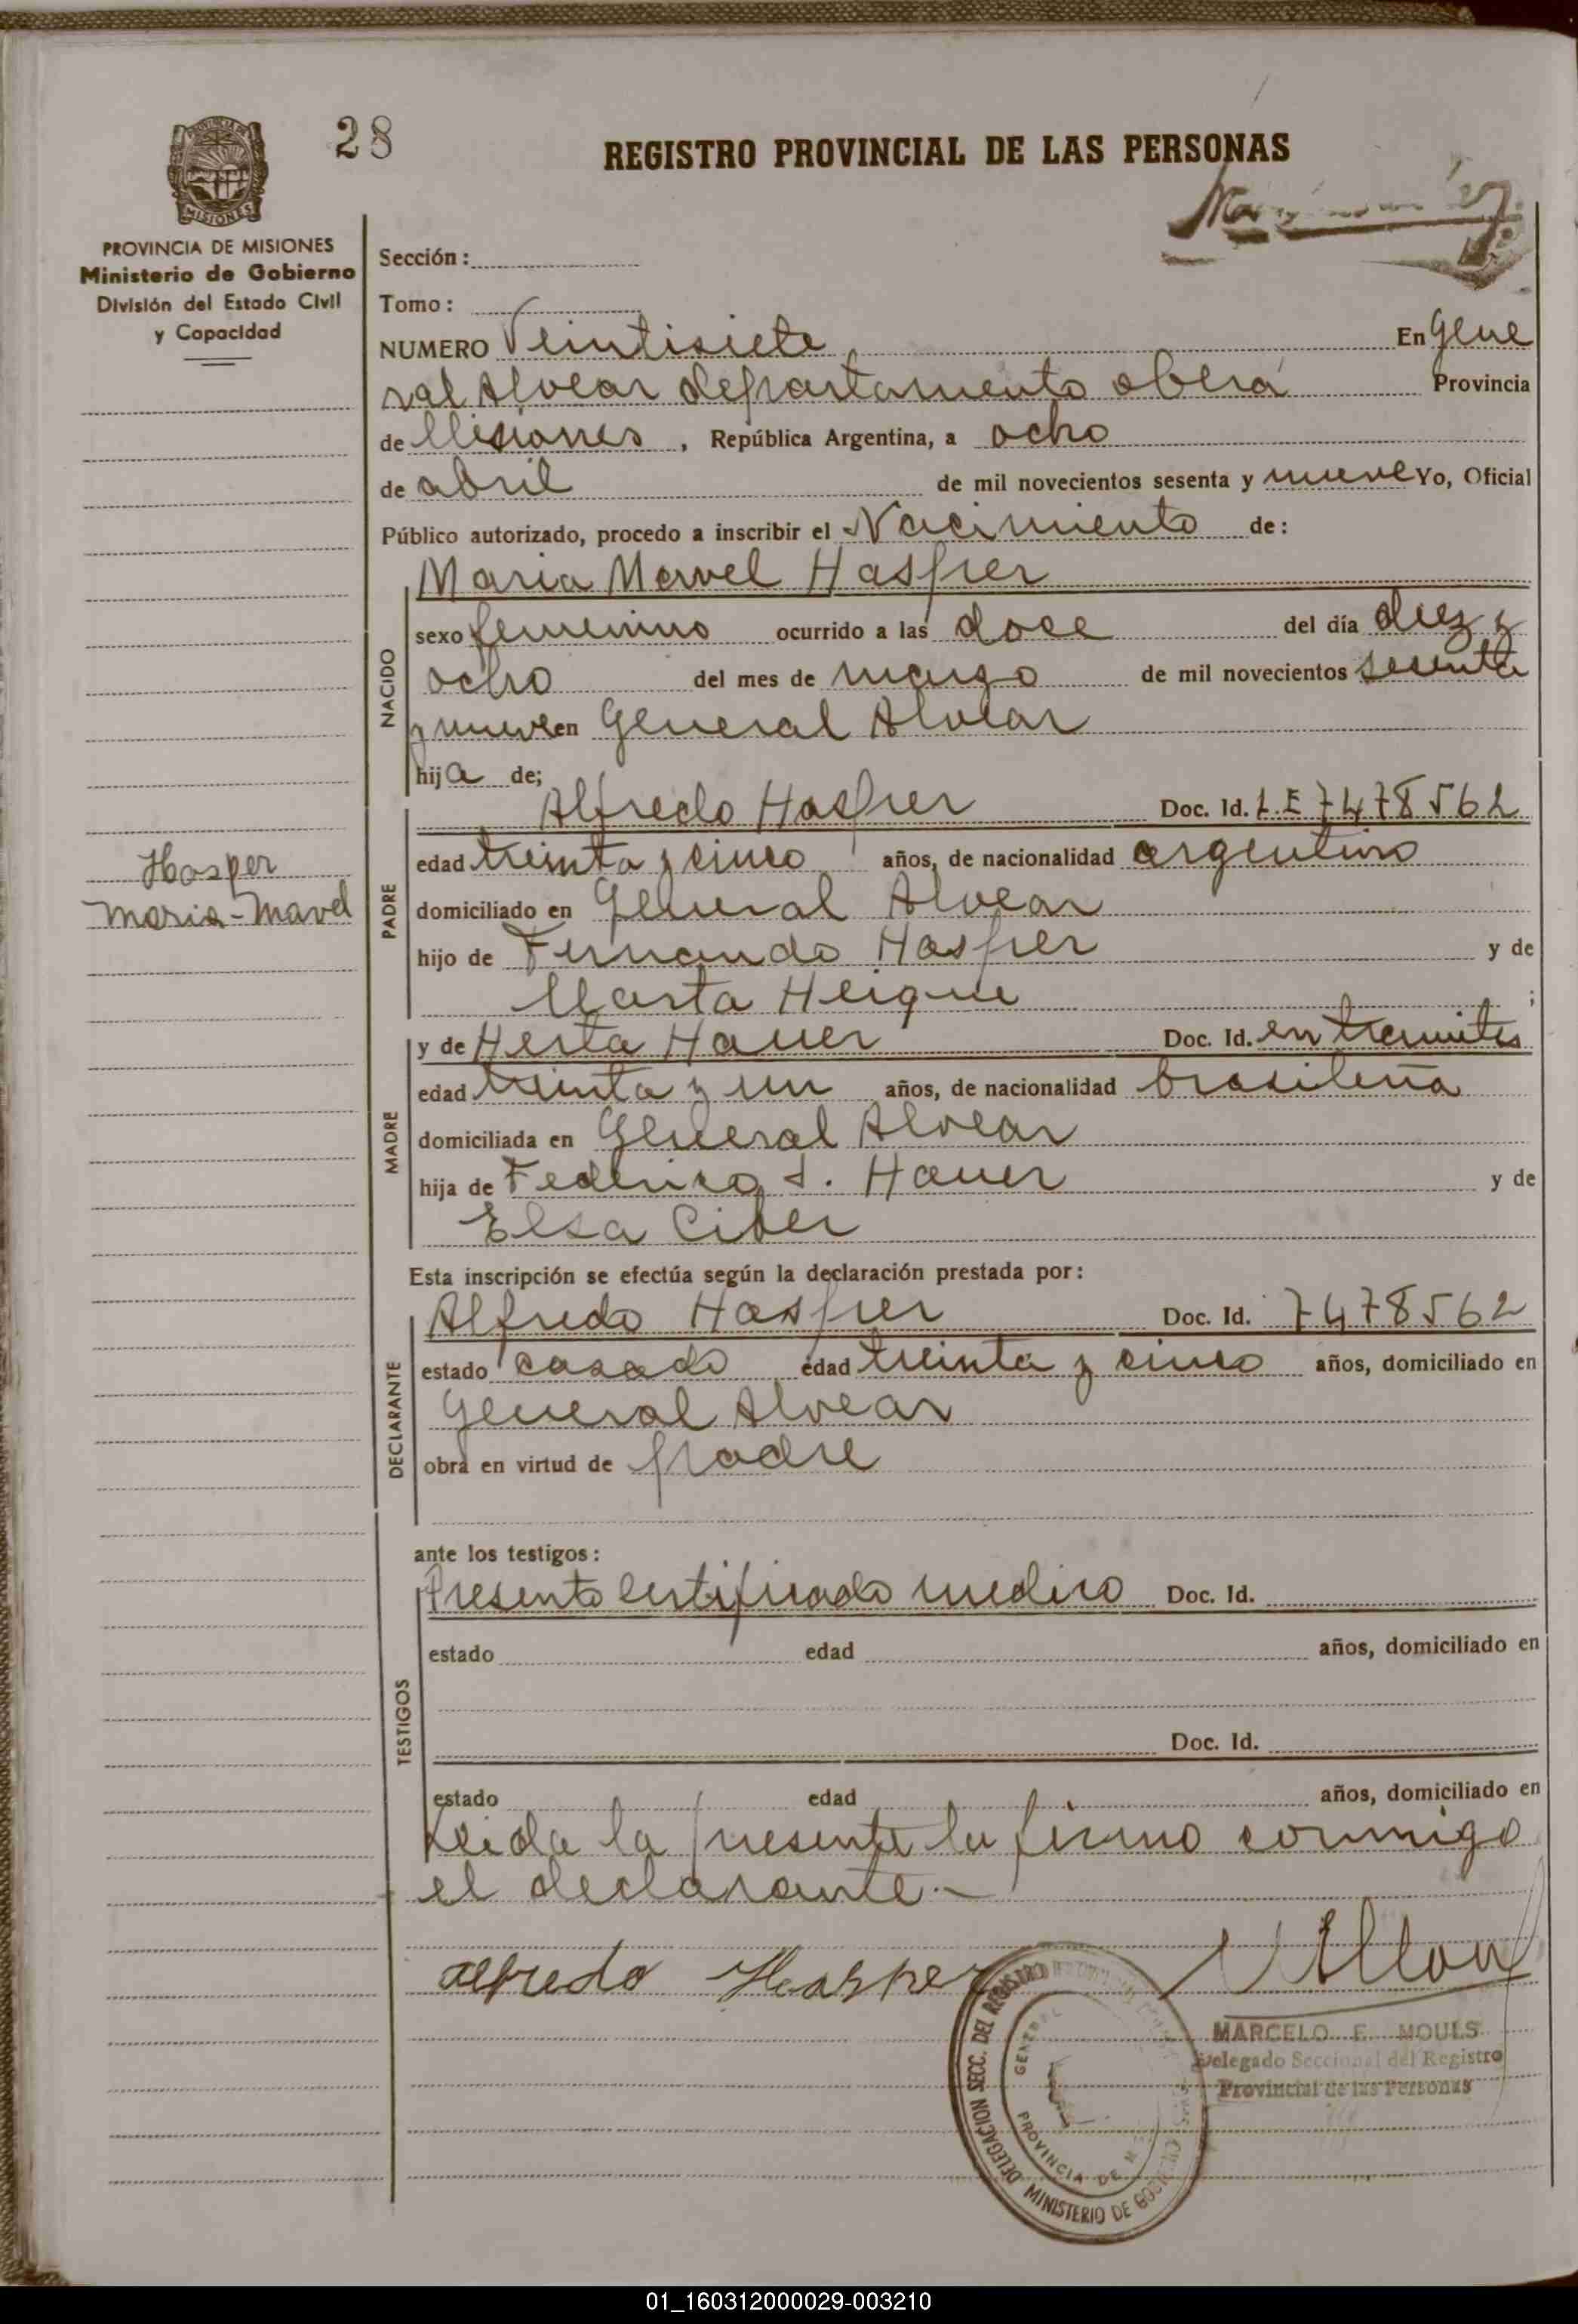 28
REGISTRO PROVINCIAL DE LAS PERSONAS
PROVINCIA DE MISIONES
Ministerio de Gobierno
División del Estado Civil
y Capacidad
Sección:
Tomo:
NUMERO Veintisiete En Gene
ral Alvear departamento obera Provincia
de Misiones, República Argentina, a ocho
de abril de mil novecientos sesenta y nueve Yo, Oficial
Público autorizado, procedo a inscribir el Nacimiento de:
NACIDO
Maria Marvel Hasper
sexo femenino ocurrido a las doce del día diez y
ocho del mes de marzo de mil novecientos sesenta
y nueve en General Alvear
hija de;
PADRE
Alfredo Hasper Doc. Id. L.E 7478562
edad treinta y cinco años, de nacionalidad argentino
domiciliado en General Alvear
hijo de Fernando Hasper y de
Marta Heique ;
Hasper
Maria-Mavel
MADRE
y de Herta Hauer Doc. Id. en tramites
edad treinta y un años, de nacionalidad brasileña
domiciliada en General Alvear
hija de Federico Hauer y de
Elsa Ciber
Esta inscripción se efectúa según la declaración prestada por:
DECLARANTE
Alfredo Hasper Doc. Id. 7478562
estado casado edad treinta y cinco años, domiciliado en
General Alvear
obra en virtud de padre
ante los testigos:
TESTIGOS
Presento certificado medico Doc. Id.
estado edad años, domiciliado en
Doc. Id.
estado edad años, domiciliado en
Leida la presente la firma conmigo
el declarante.-
alfredo Hasper
MARCELO E. MOULS
Delegado Seccional del Registro
Provincial de las Personas
DELEGACION SECC. DEL REGISTRO
MINISTERIO DE GOBIERNO
GENERAL
PROVINCIA DE
01_160312000029-003210